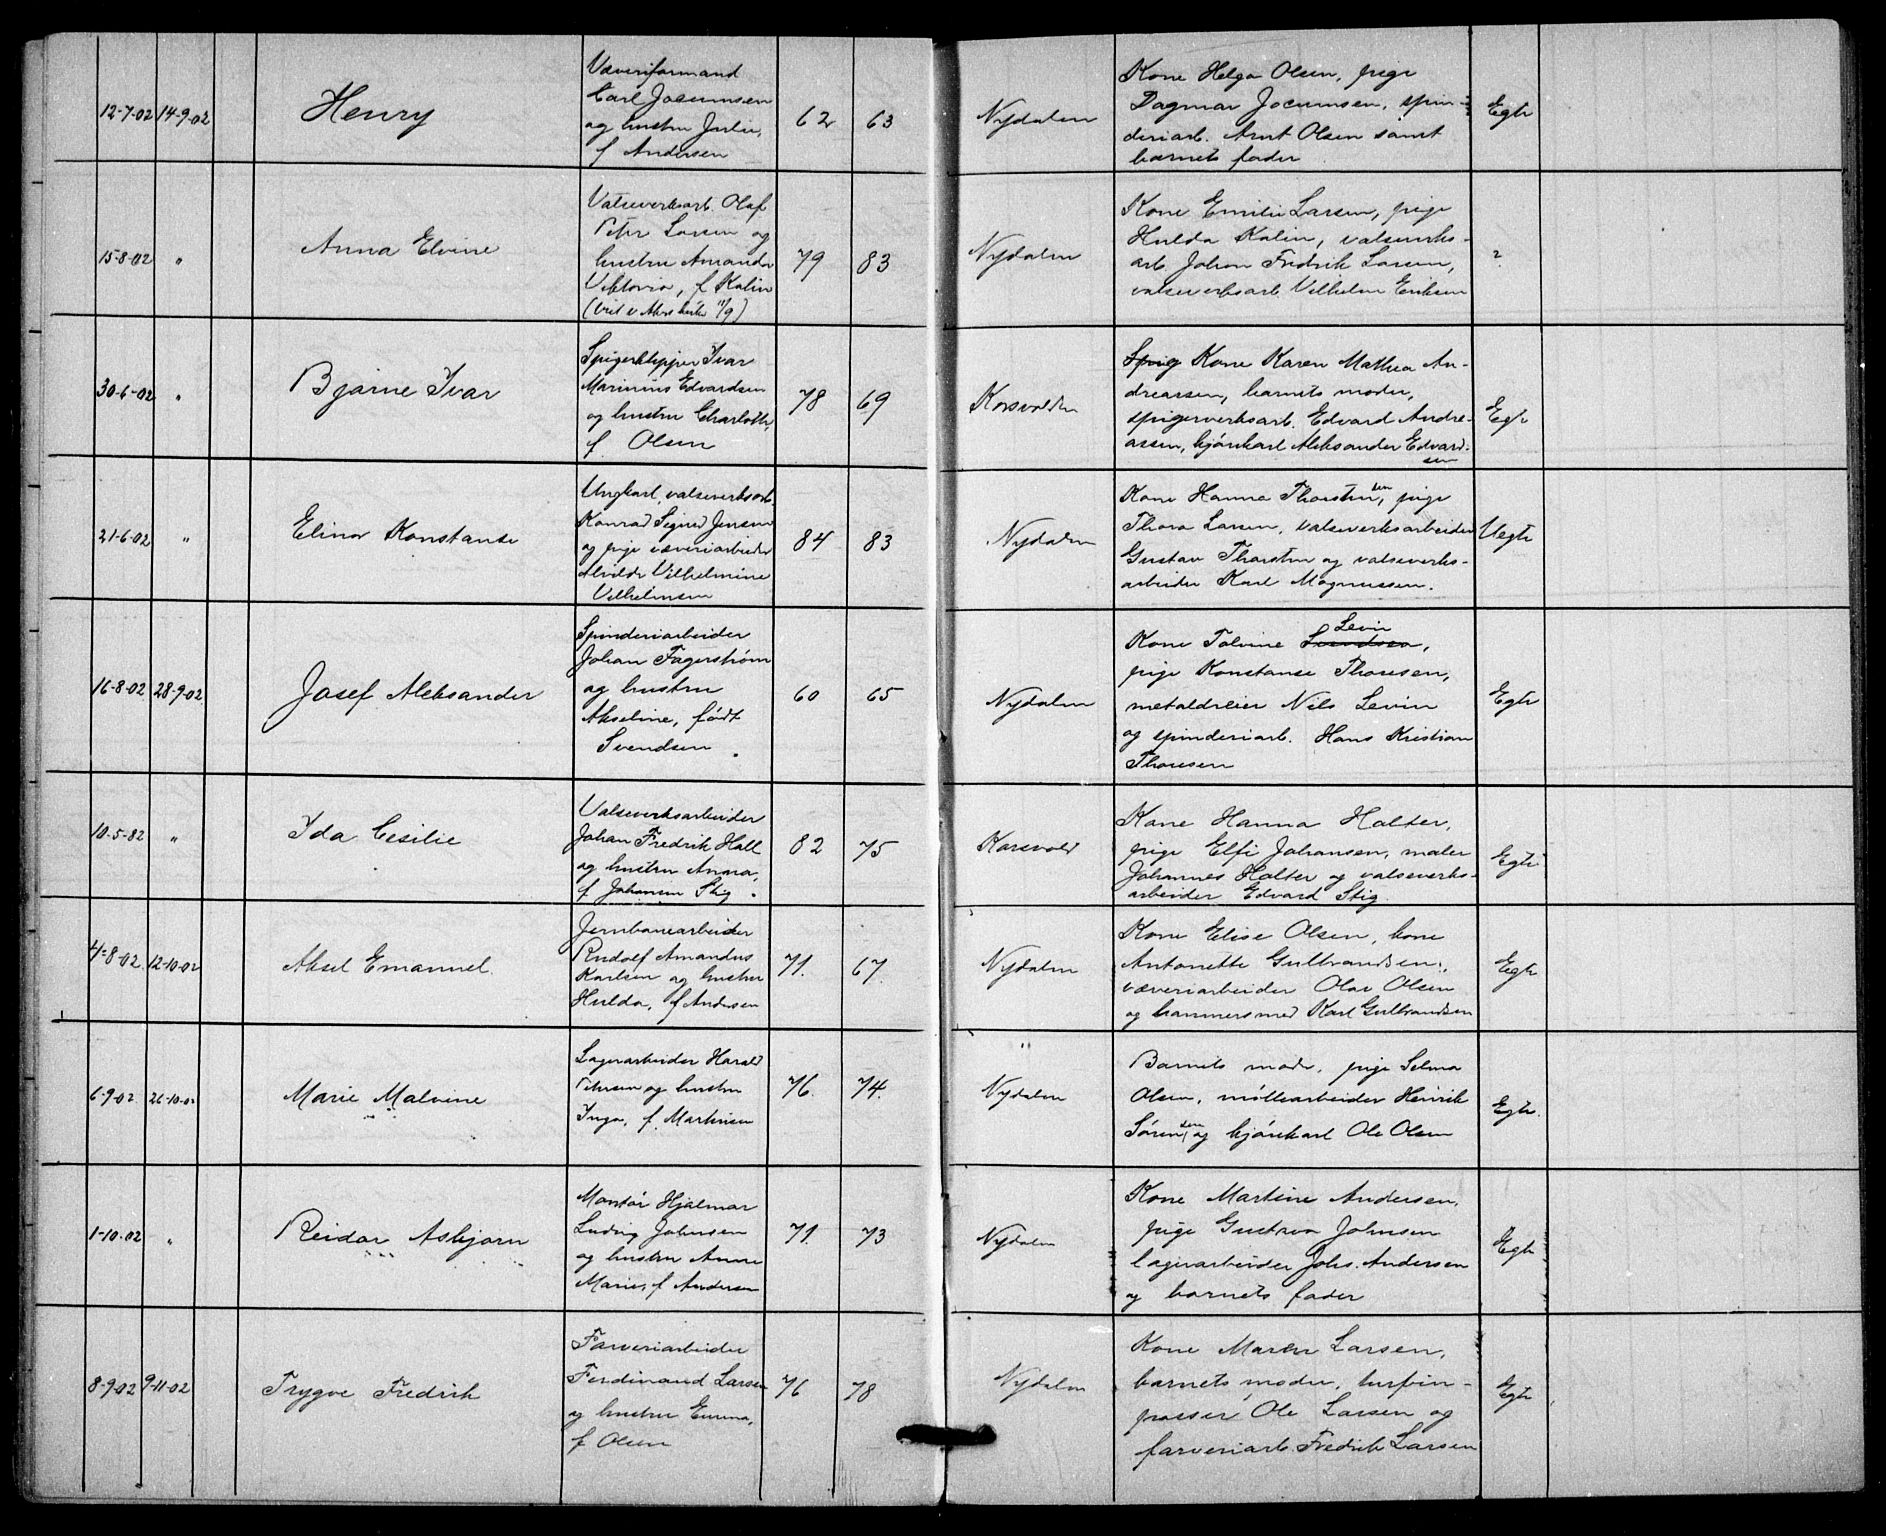 12-7-02 14-9-02
Henry
Væveriformand
Carl Jocumsen
og hustru Julie,
f Andersen
62 63
Nydalen
Kone Helga Olsen, pige
Dagmar Jocumsen, spin-
deriarb. Arnt Olsen samt
barnets fader
Egte
15-8-02 "
Anna Elvine
Valseverksarb. Olaf
Peter Larsen og
hustru Amanda
Viktoria, f Kalin
79 83
Nydalen
Kone Emilie Larsen, pige
Hulda Kalin, valseverks-
arb. Johan Fredrik Larsen,
valseverksarb. Vilhelm Eriksen
30-6-02 "
Bjarne Ivar
Spigerklipper Ivar
Marinius Edvardsen
og hustru Charlotte,
f. Olsen
78 69
Korsvolden
Spig Kone Karen Mathea An-
dreassen, barnets moder,
spigerverksarb. Edvard Andre-
assen, kjørekarl Aleksander Edvard-
sen
Egte
21-6-02 "
Elinor Konstanse
Ungkarl, valseverksarb.
Konrad Sigurd Jensen
og pige væveriarbeider
Alvilde Vilhelmine
Vilhelmsen
84 83
Nydalen
Kone Hanna Thorstensen, pige
Thora Larsen, valseverksarbeider
Gustav Thorsten og valseverks-
arbeider Karl Magnussen.
Uegte
16-8-02 28-9-02
Josef Aleksander
Spinderiarbeider
Johan Fagerstrøm
og hustru
Akseline, født
Svendsen
60 65
Nydalen
Levin
Kone Tolvine Svendsen,
pige Konstanse Thoresen,
metaldreier Nils Levin
og spinderiarb. Hans Kristian
Thoresen
Egte
10-5-82 "
Ida Cesilie
Valseverksarbeider
Johan Fredrik Hall
og hustru Anna,
f. Johansen Stig
82 75
Korsvold
Kone Hanna Halter,
pige Elfi Johansen, maler
Johannes Halter og valseverks-
arbeider Edvard Stig.
Egte
4-8-02 12-10-02
Aksel Emanuel
Jernbanearbeider
Rudolf Amandus
Karlsen og hustru
Hulda, f Andersen
71. 67.
Nydalen
Kone Elise Olsen, kone
Antonette Gulbrandsen,
væveriarbeider Olav Olsen
og hammersmed Karl Gulbrandsen
Egte
6-9-02 26-10-02
Marie Malvine
Lagerarbeider Harald
Petersen og hustru
Inga, f. Martinsen
76. 74.
Nydalen
Barnets moder, pige Selma
Olsen, møllearbeider Henrik
Sørensen, og kjørekarl Ole Olsen
Egte.
1-10-02 "
Reidar Asbjørn
Montør Hjalmar
Ludvig Johnsen
og hustru Anna
Marie, f Andersen
71 73
Nydalen
Kone Martine Andersen,
pige Gustava Johnsen
lagerarbeider Johs. Andersen
og barnets fader
Egte
8-9-02 9-11-02
Trygve Fredrik
Farveriarbeider
Ferdinand Larsen
og hustru Emma,
f Olsen
76 78
Nydalen
Kone Maren Larsen,
barnets moder, turbin-
passer Ole Larsen og
farveriarb. Fredrik Larsen
Egte